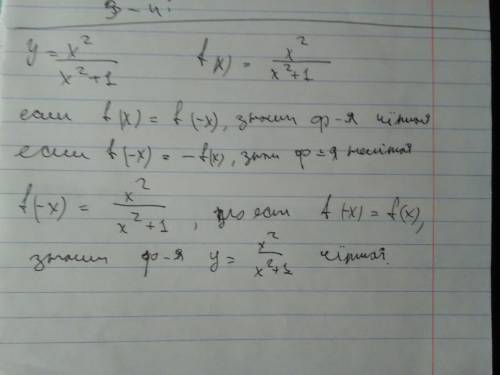 3 - 4i
y = x²/(x²+1) f(x) = x²/(x²+1)
если f(x) = f(-x), значит ф-я чётная
если f(-x) = -f(x), знач ф-я нечётная
f(-x) = x²/(x²+1), то есть f(-x) = f(x),
значит ф-я y = x²/(x²+1) чётная.